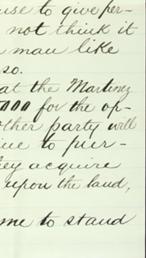 use to give per-
not think it
man like
so.
at the Martinez
000 for the op-
other party will
ive to pur-
hey acquire
upon the land,
me to stand